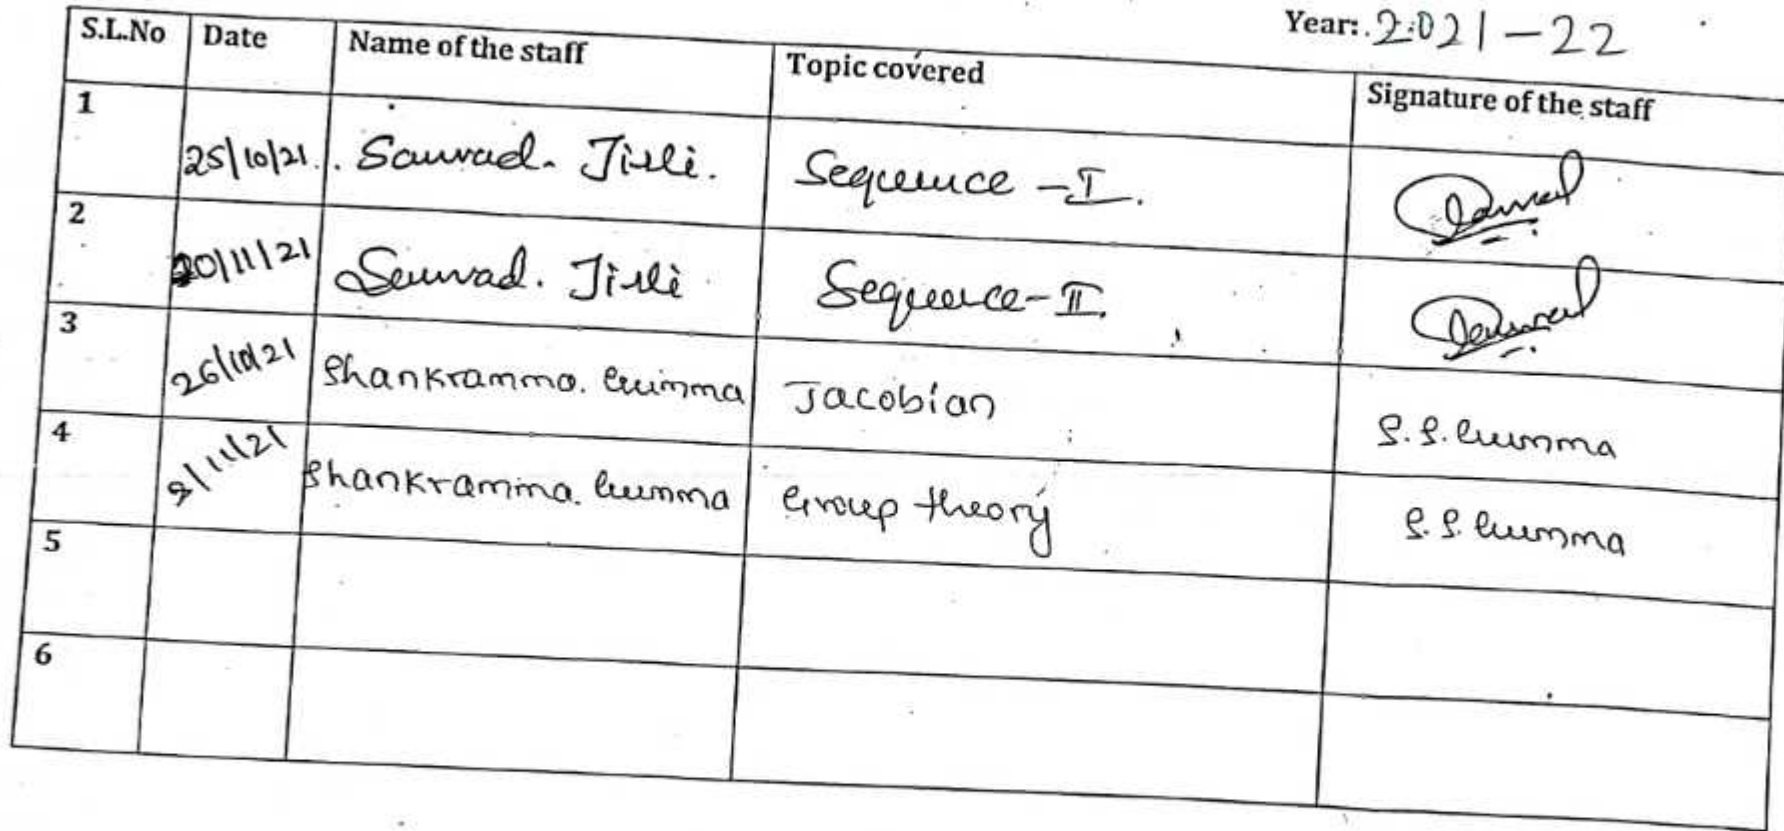 Year: 2021-22
S.L.No Date Name of the staff Topic covered Signature of the staff
1 25/10/21 Sequence - I.
2 20/11/21 Sequence - II.
3 26/10/21 Shankramma. Gumma Jacobian S. S. Gumma
4 9/11/21 Shankramma. Gumma Group theory S. S. Gumma
5
6